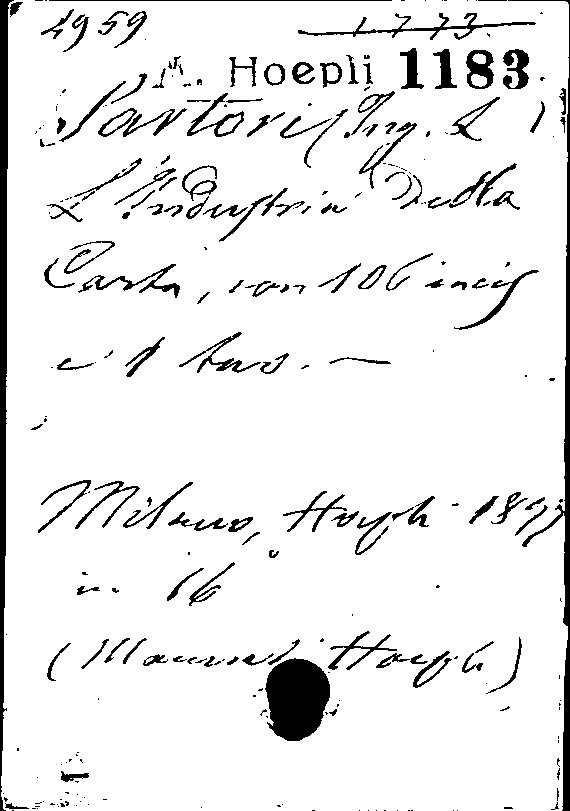 4959 1773.
A. Hoepli 1183.
Sartori (Ing. L)
L'Industria della
Carta, con 106 incis
e 1 tav. —
Milano, Hoepli 1897
in 16
(Manuali Hoepli)